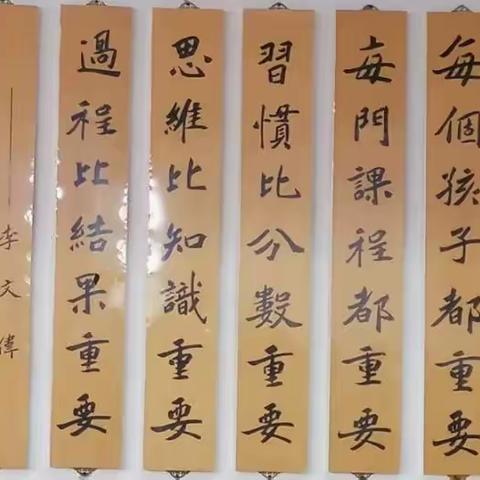 每個孩子都重要
每門課程都重要
習慣比分數重要
思維比知識重要
過程比結果重要
——李文偉